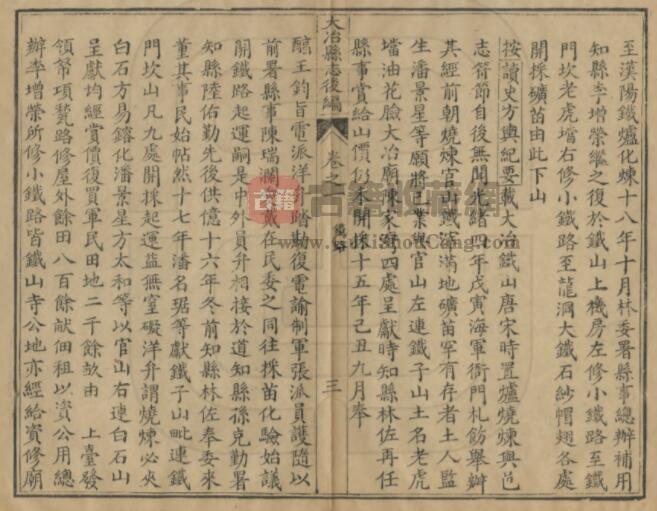 至漢陽鐵爐化煉十八年十月林委署縣事總辦補用
知縣李增榮繼之復於鐵山上機房左修小鐵路至鐵
門坎老虎壋右修小鐵路至龍洞大鐵石紗帽翅各處
開採礦苗由此下山
按讀史方輿紀要載大冶鐵山唐宋時置爐燒煉與邑
志符節自後無聞光緒四年戊寅海軍衙門札飭舉辦
其經前朝燒煉官山鐵滓滿地礦苗罕有存者土人監
生潘景星等願將山業與官山左連鐵子山土名老虎
壋油花臉大冶廟陳家灣四處呈獻時知縣林佐再任
縣事賞給山價仍未開採十五年己丑九月奉
大冶縣志後編
卷之一
鐵路
三
醇王鈞旨電派洋
踏勘復電諭制軍張派員護隨以
前署縣事陳瑞瀾
戴在民委之同往採苗化驗始議
開鐵路起運嗣是中外員弁相接於道知縣孫克勤署
知縣陸佑勤先後供億十六年冬前知縣林佐奉委來
董其事民始帖然十七年潘名琚等獻鐵子山毗連鐵
門坎山凡九處開採起運益無室礙洋弁謂燒煉必夾
白石方易鎔化潘景星方太和等以官山右連白石山
呈獻均經賞價復買軍民田地二千餘故由 上臺發
領帑項甃路修屋外餘田八百餘献佃租以資公用總
辦李增榮所修小鐵路皆鐵山寺公地亦經給資修廟
古籍收藏网
www.gujishoucang.com
古籍